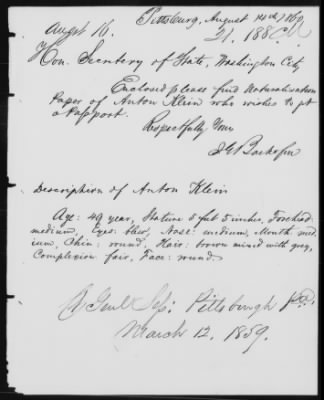 Augst 16.
Pittsburg, August 14th, 1860
21.188
Hon. Secretery of State, Washington City
Enclosed please find Naturalisation
Paper of Anton Klein who wishes to get
a Passport.
Respectfully Your
Description of Anton Klein
Age: 49 year, Stature 5 feet 5 inches, Forehead
medium, Eyes: blew, Nose: medium, Mouth med
ium, Chin: round, Hair: brown mixed with grey,
Complexion fair, Face: round.
Pittsburgh Pa.
March 12, 1859.